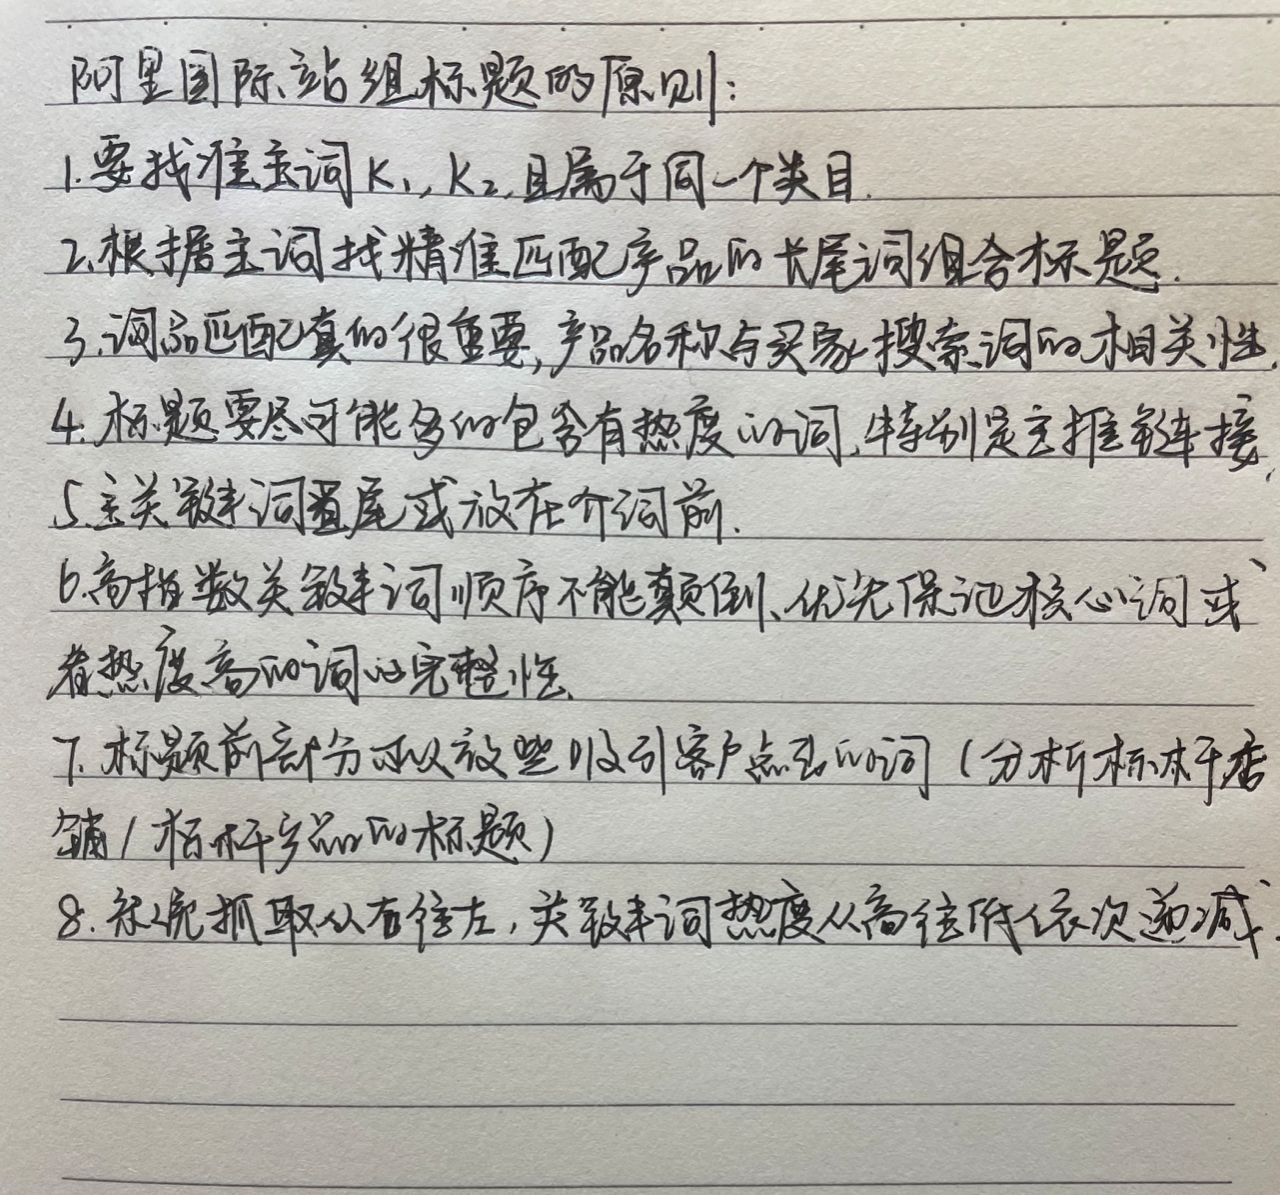 阿里国际站组标题的原则:
1.要找准主词K1,K2,且属于同一个类目.
2.根据主词找精准匹配产品的长尾词组合标题.
3.词品匹配真的很重要,产品名称与买家搜索词的相关性.
4.标题要尽可能多的包含有热度的词,特别是主推链接,
5.主关键词置尾或放在介词前.
6.高指数关键词顺序不能颠倒、优先保证核心词或
者热度高的词的完整性.
7.标题前部分可以放些吸引客户点击的词(分析标杆店
铺/标杆产品的标题)
8.系统抓取从右往左,关键词热度从高往低依次递减.